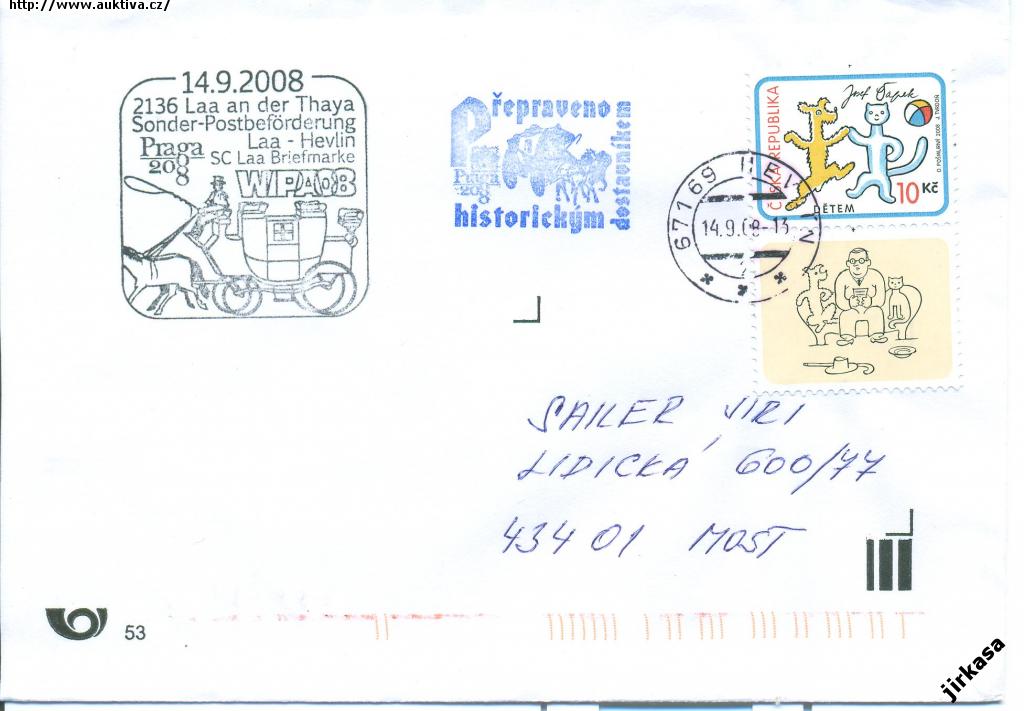 http://www.auktiva.cz/
14.9.2008
2136 Laa an der Thaya
Sonder-Postbeförderung
Laa - Hevlin
SC Laa Briefmarke
Praga
2008
WIPA08
Přepraveno
Praga
2008
historickým
dostavníkem
67169 HEVLÍN
14.9.08-13
ČESKÁ REPUBLIKA
Josef Čapek
DĚTEM
10 Kč
SAILER JIRI
LIDICKÁ 600/77
434 01 MOST
53
jirkasa